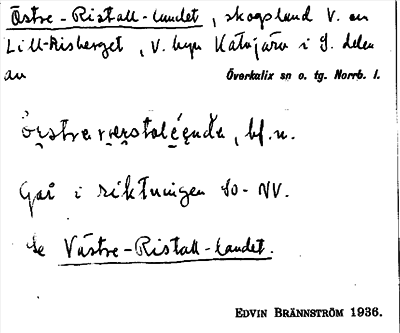 Östre-Ristall-landet, skogsland V. om
Lill-Risberget, V. byn Katajärv i S. delen
av Överkalix sn o. tg. Norrb. l.
bf. n.
Går i riktningen SO-NV.
Se Västre-Ristall-landet.
EDVIN BRÄNNSTRÖM 1936.